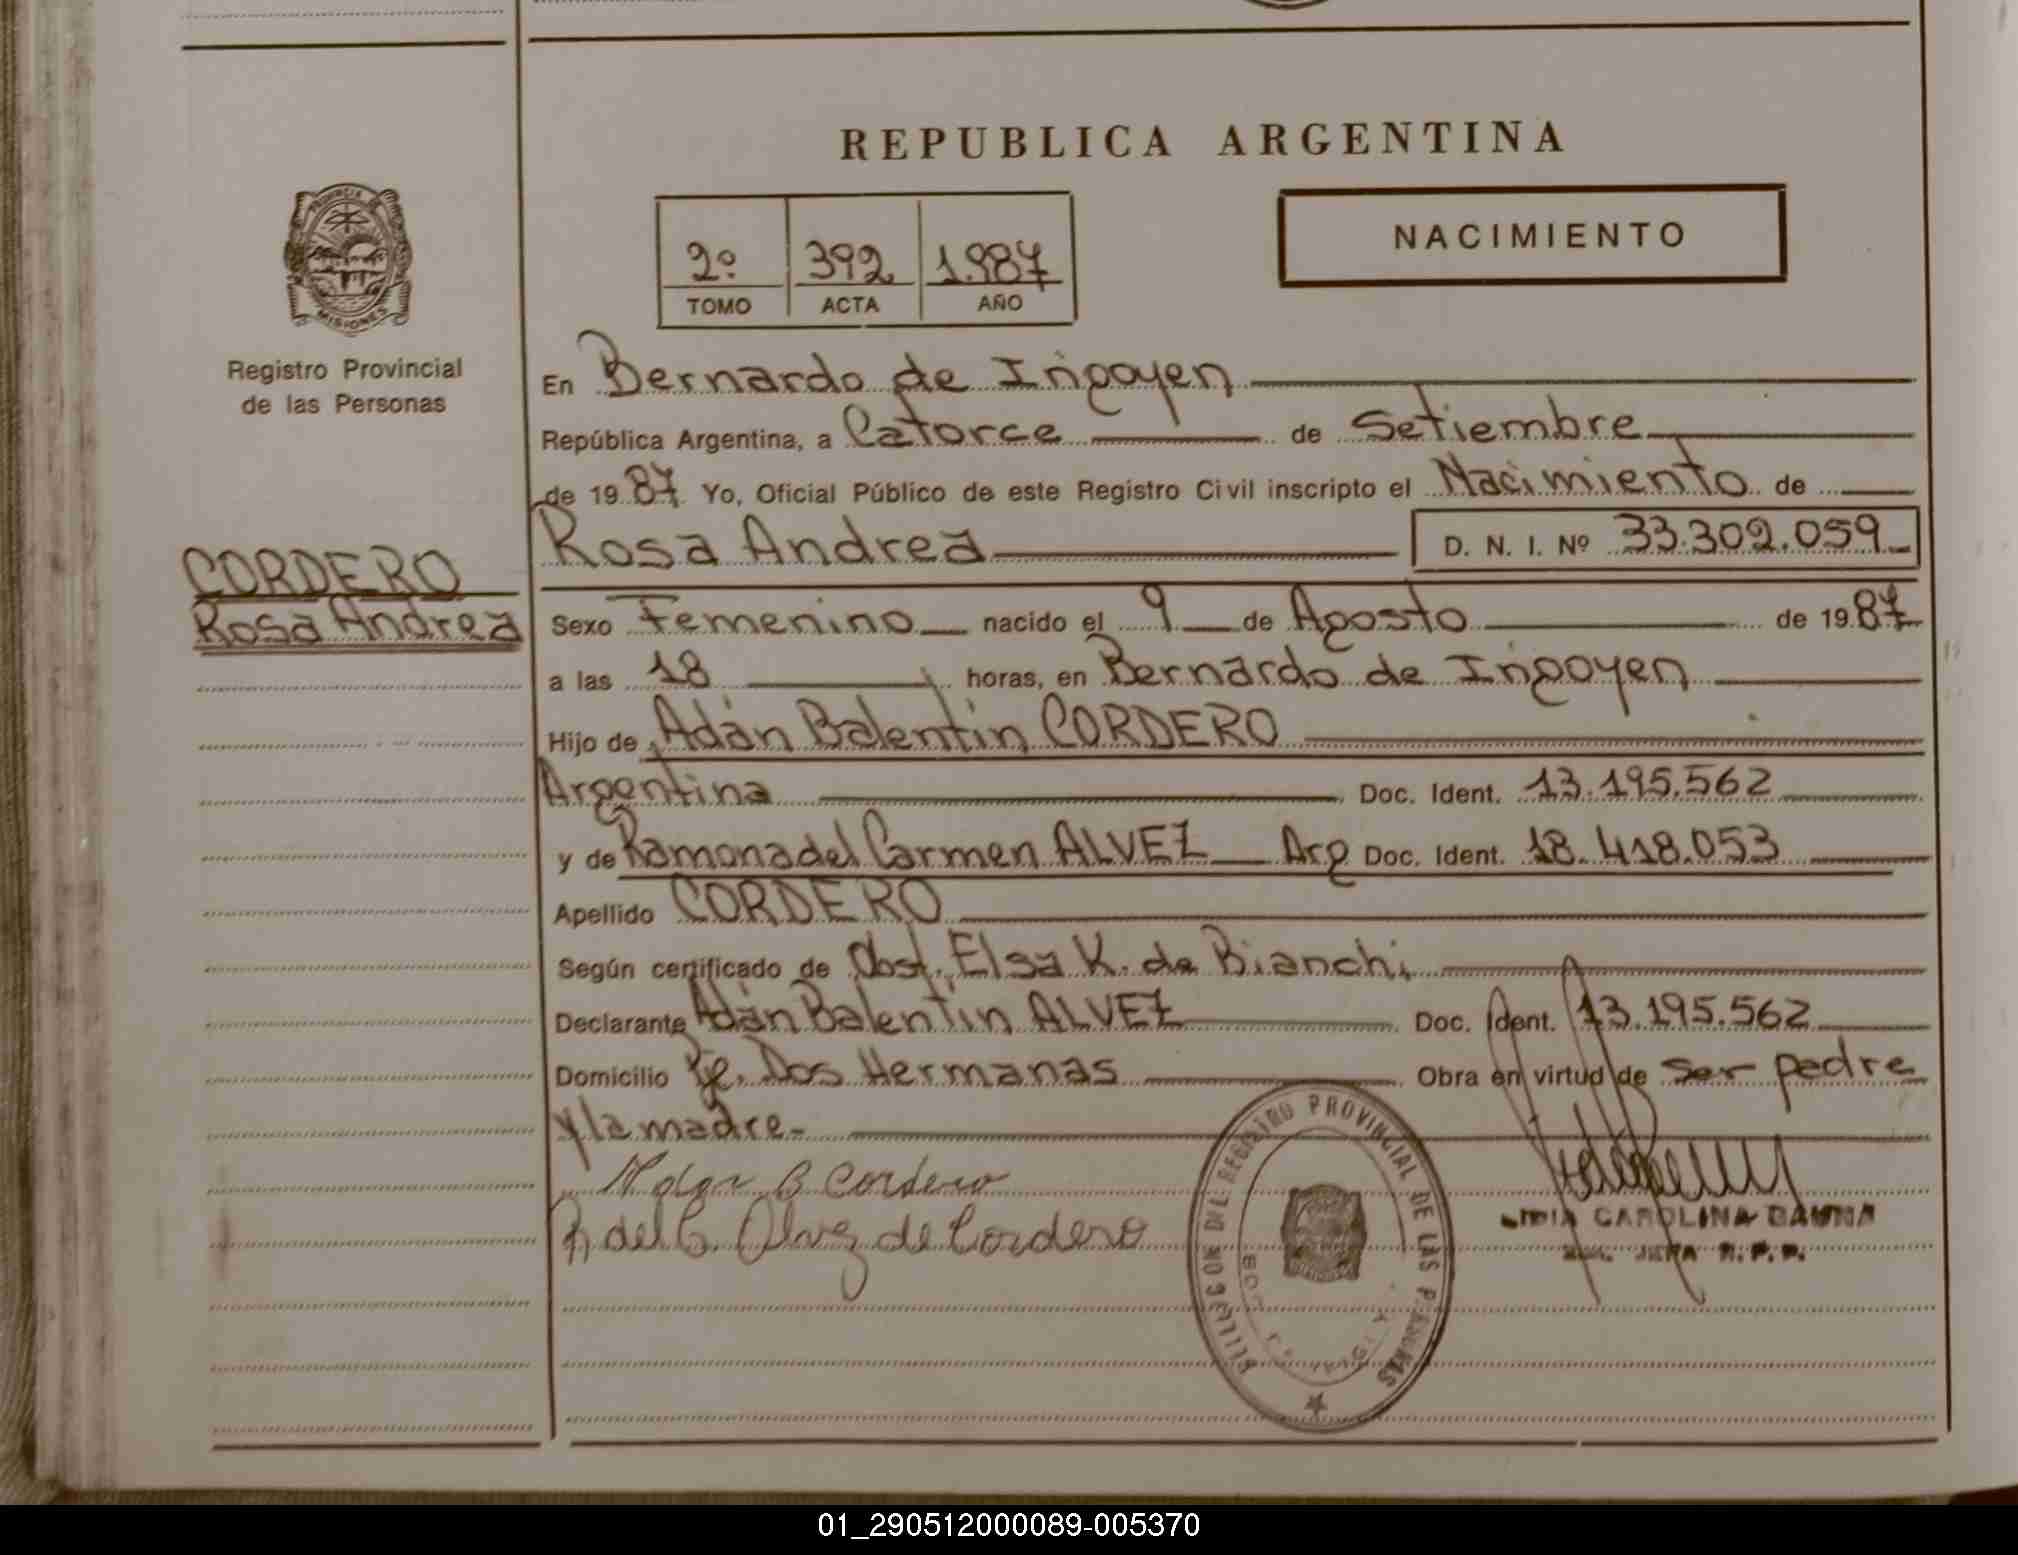 REPUBLICA ARGENTINA
PROVINCIA DE
MISIONES
Registro Provincial
de las Personas
2º 392 1.987
TOMO ACTA AÑO
NACIMIENTO
En Bernardo de Irigoyen
República Argentina, a Catorce de Setiembre
de 1987 Yo, Oficial Público de este Registro Civil inscripto el Nacimiento de
Rosa Andrea D. N. I. Nº 33.302.059
CORDERO
Rosa Andrea
Sexo Femenino nacido el 9 de Agosto de 1987
a las 18 horas, en Bernardo de Irigoyen
Hijo de Adán Balentín CORDERO
Argentina Doc. Ident. 13.195.562
y de Ramona del Carmen ALVEZ Arg Doc. Ident. 18.418.053
Apellido CORDERO
Según certificado de Obst. Elsa K. de Bianchi
Declarante Adán Balentín ALVEZ Doc. Ident. 13.195.562
Domicilio Pje. Dos Hermanas Obra en virtud de ser padre
y la madre-
B Cordero
R. del C. Alvez de Cordero
REGISTRO PROVINCIAL DE LAS PERSONAS
CAROLINA
JEFA R. P. P.
01_290512000089-005370